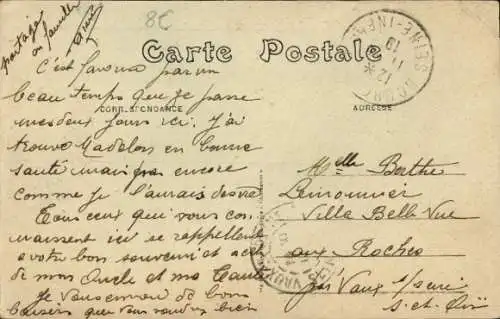 partage
en famille
8€
Carte Postale
CORRESPONDANCE
ADRESSE
SEINE-INF
12 *
11
10
C'est favorisé par un
beau temps que je passe
mes deux jours ici. J'ai
trouvé Madelon en bonne
santé mais pas encore
comme je l'aurais désiré
Tous ceux que vous con-
naissent ici se rappellent
à votre bon souvenir et
de mon Oncle et ma Tante
Je vous envoie de bien bons
baisers que vous voudrez bien
Melle Berthe
Lemonnier
Villa Belle Vue
aux Roches
par Vaux s/Seine
S.-et-Oise